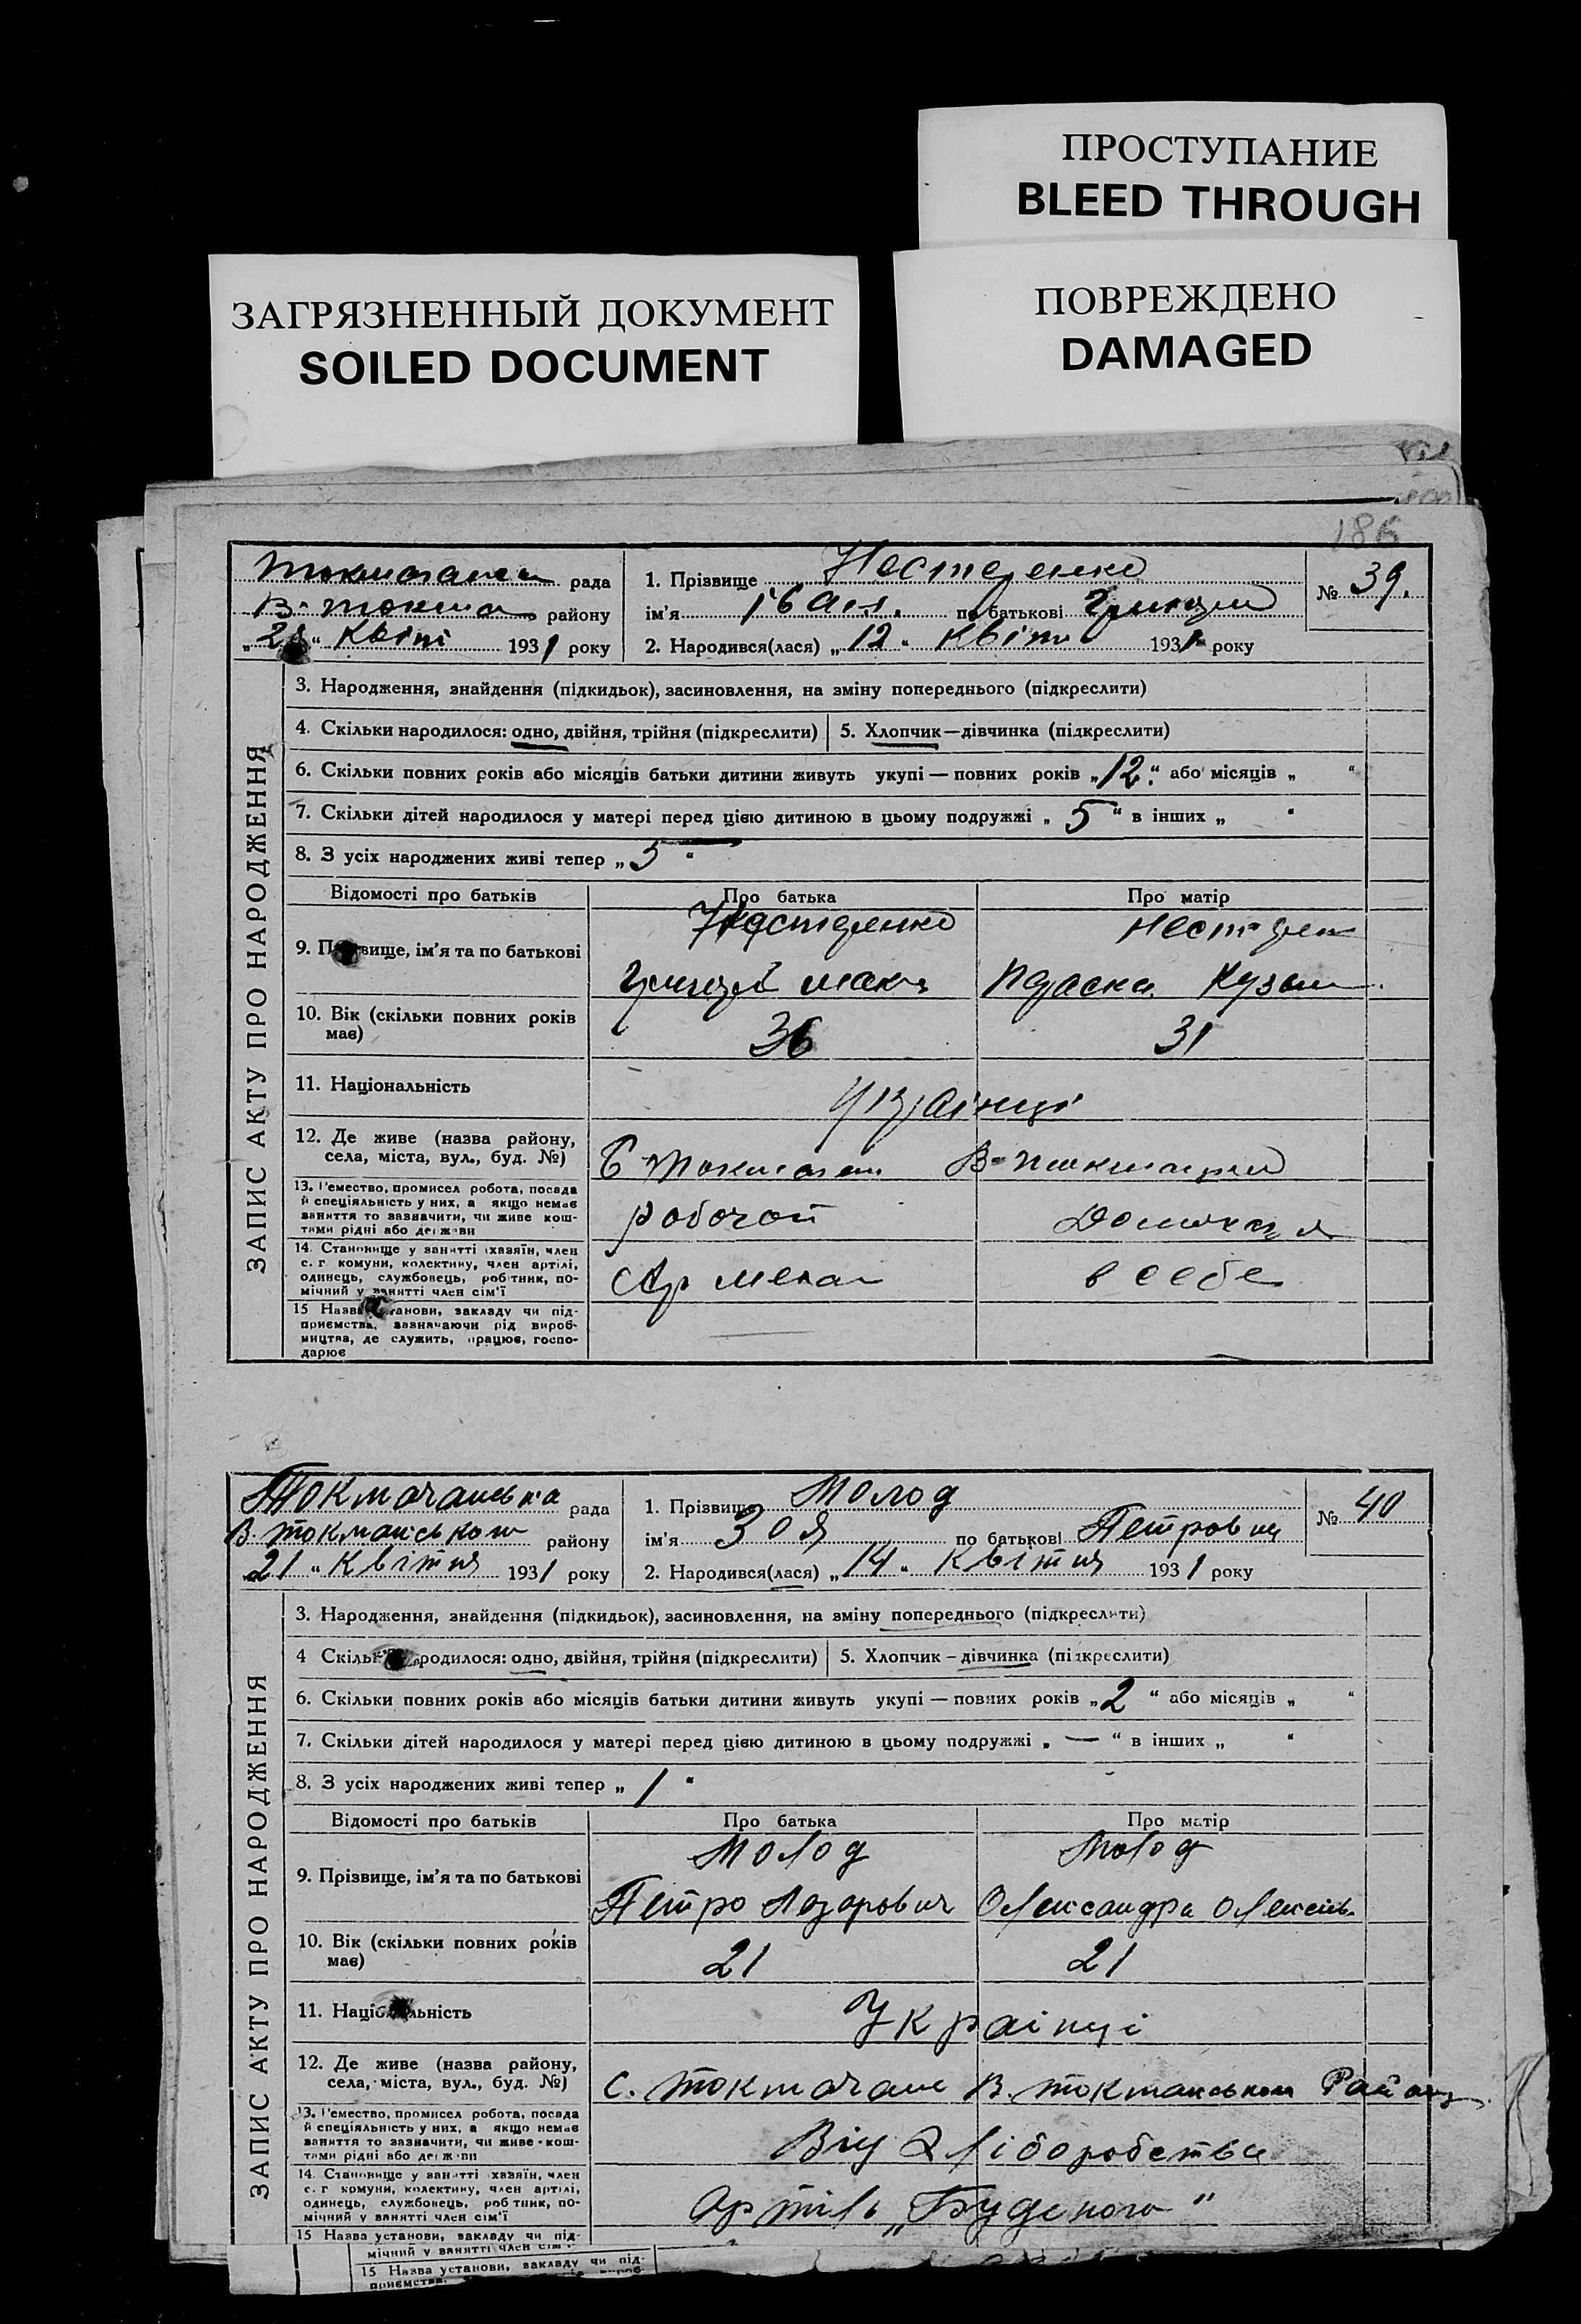 ПРОСТУПАНИЕ
BLEED THROUGH
ЗАГРЯЗНЕННЫЙ ДОКУМЕНТ
SOILED DOCUMENT
ПОВРЕЖДЕНО
DAMAGED
186
рада
В. Токма району
„21“ Квітн 1931 року
1. Прізвище Нестеренко
ім'я Іван по батькові
2. Народився(лася) „12“ Квітн 1931 року
№ 39.
ЗАПИС АКТУ ПРО НАРОДЖЕННЯ
3. Народження, знайдення (підкидьок), засиновлення, на зміну попереднього (підкреслити)
4. Скільки народилося: одно, двійня, трійня (підкреслити) 5. Хлопчик—дівчинка (підкреслити)
6. Скільки повних років або місяців батьки дитини живуть укупі — повних років „12“ або місяців „ “
7. Скільки дітей народилося у матері перед цією дитиною в цьому подружжі „ 5 “ в інших „ “
8. З усіх народжених живі тепер „ 5 “
Відомості про батьків Про батька Про матір
9. Прізвище, ім'я та по батькові Нестеренко Нестерен
10. Вік (скільки повних років має) 36 31
11. Національність Українці
12. Де живе (назва району, села, міста, вул., буд. №)
13. Ремество, промисел робота, посада й спеціяльність у них, а якщо немає заняття то зазначити, чи живе коштами рідні або держави Робочой
14. Становище у занятті (хазяїн, член с. г комуни, колективу, член артілі, одинець, службовець, робітник, помічний у занятті член сім'ї в себе
15 Назва установи, закладу чи підприємства, зазначаючи рід виробництва, де служить, працює, господарює
Токмачанська рада
В. Токмаському району
21 “ Квітня 1931 року
1. Прізвище Молод
ім'я Зоя по батькові Петровня
2. Народився(лася) „14“ Квітня 1931 року
№ 40
ЗАПИС АКТУ ПРО НАРОДЖЕННЯ
3. Народження, знайдення (підкидьок), засиновлення, на зміну попереднього (підкреслити)
4 Скільки народилося: одно, двійня, трійня (підкреслити) 5. Хлопчик – дівчинка (підкреслити)
6. Скільки повних років або місяців батьки дитини живуть укупі — повних років „ 2 “ або місяців „ “
7. Скільки дітей народилося у матері перед цією дитиною в цьому подружжі „ — “ в інших „ “
8. З усіх народжених живі тепер „ 1 “
Відомості про батьків Про батька Про матір
Молод Молод
9. Прізвище, ім'я та по батькові Петро Лазарович Олександра Олексіїв.
10. Вік (скільки повних років має) 21 21
11. Національність Українці
12. Де живе (назва району, села, міста, вул., буд. №) с. Токмачан В. Токмаському Району
13. Ремество, промисел робота, посада й спеціяльність у них, а якщо немає заняття то зазначити, чи живе коштами рідні або держави Від Хліборобства
14. Становище у занятті хазяїн, член с. г комуни, колективу, член артілі, одинець, службовець, робітник, помічний у занятті член сім'ї Артіль „Буденого“
15 Назва установи, закладу чи під-
мічний у занятті член сім'ї
15 Назва установи, закладу чи під-
приємства